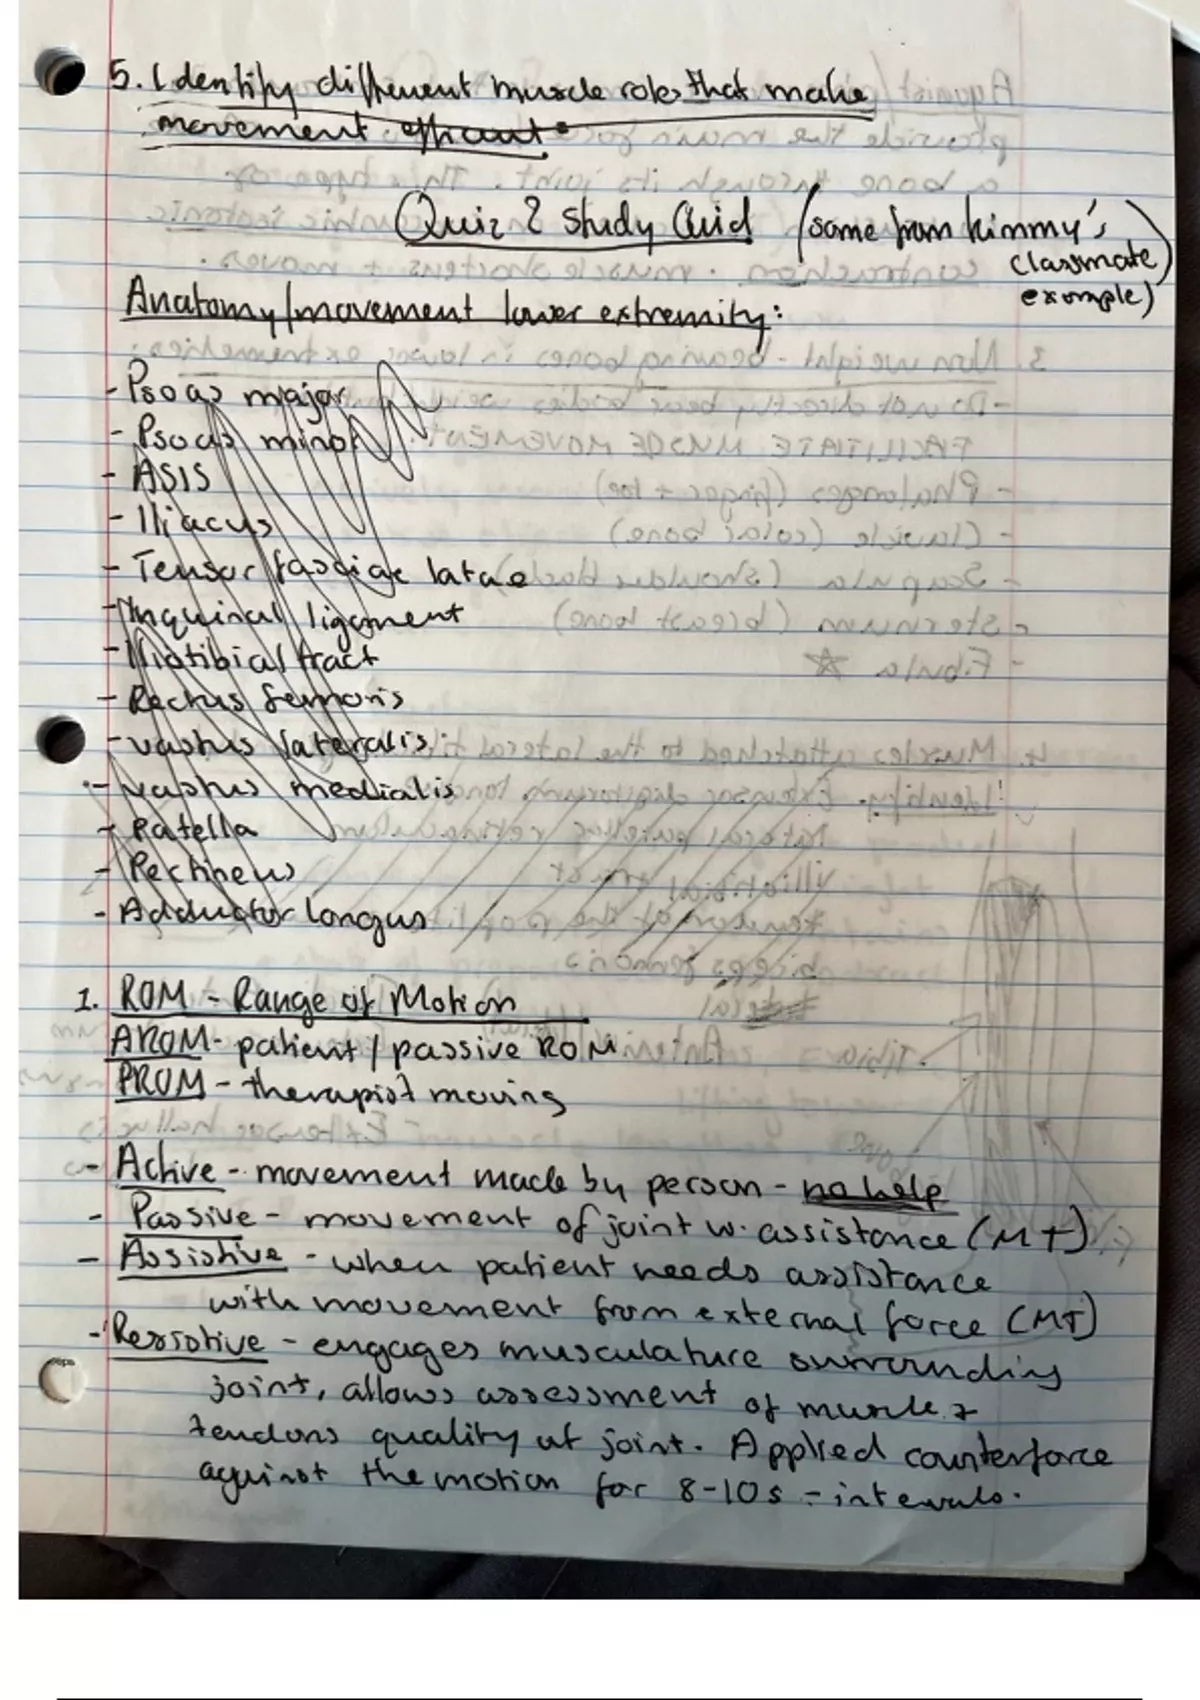 5. Identify different muscle roles that make
movement efficient.
Quiz 2 Study Guid (some from Kimmy's
classmate
example)
Anatomy/movement lower extremity:
- Psoas major
- Psoas minor
- ASIS
- Iliacus
- Tensor fasciae latae
- Inquinal ligament
- Iliotibial tract
- Rectus femoris
- vastus lateralis
- vastus medialis
- Patella
- Pectineus
- Adductor longus
1. ROM - Range of Motion
AROM - patient / passive ROM
PROM - therapist moving
- Active - movement made by person - no help
- Passive - movement of joint w. assistance (MT)
- Assistive - when patient needs assistance
with movement from external force (MT)
- Resistive - engages musculature surrounding
joint, allows assessment of muscle +
tendons quality at joint. Applied counterforce
against the motion for 8-10s - intervals.